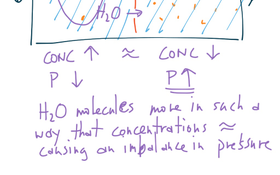 H₂O →
CONC ↑ ≈ CONC ↓
P ↓ P↑
H₂O molecules move in such a
way that concentrations ≈
causing an imbalance in pressure